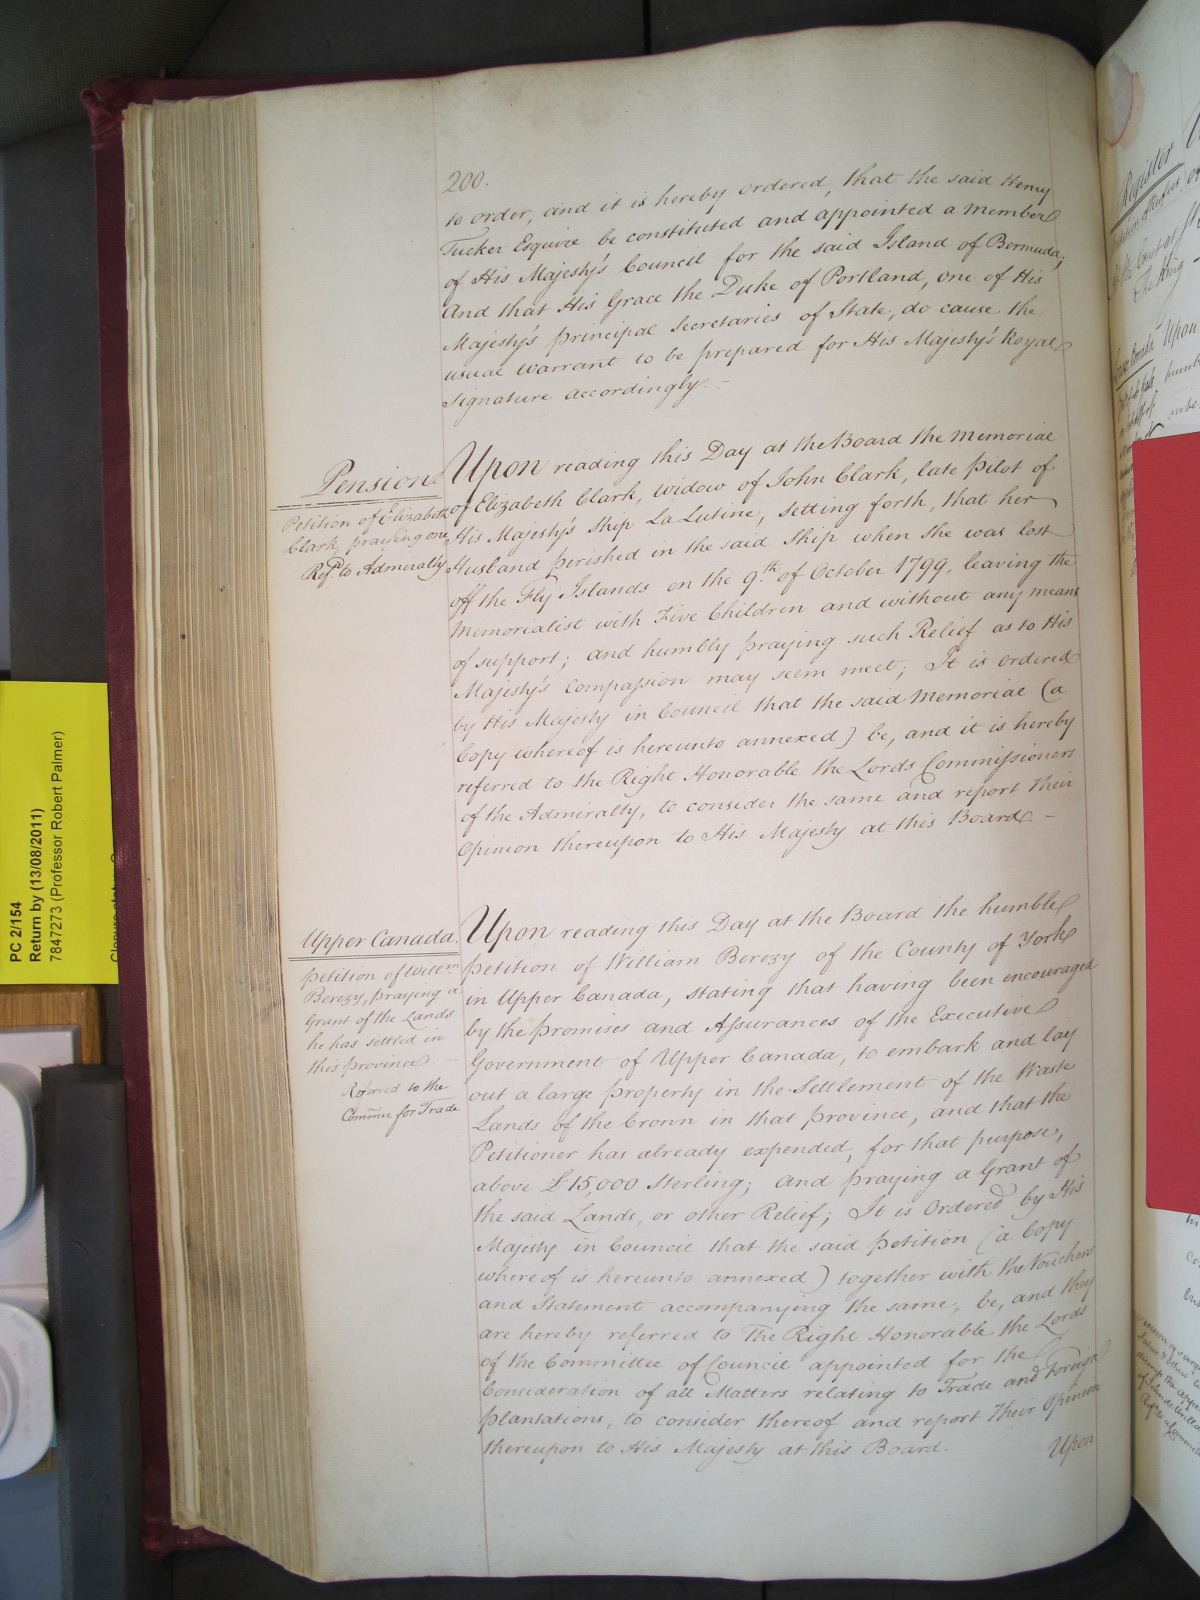 200.
to order, and it is hereby ordered, that the said Henry
Tucker Esquire be constituted and appointed a Member
of His Majesty's Council for the said Island of Bermuda;
And that His Grace the Duke of Portland, one of His
Majesty's principal Secretaries of State, do cause the
usual warrant to be prepared for His Majesty's Royal
Signature accordingly. -
Pension.
Petition of Elizabeth
Clark, praying one
Refd. to Admiralty
Upon reading this Day at the Board the Memorial
of Elizabeth Clark, Widow of John Clark, late Pilot of
His Majesty's Ship La Lutine, setting forth, that her
Husband perished in the said Ship when she was lost
off the Fly Islands on the 9th. of October 1799, leaving the
Memorialist with Five Children and without any means
of support; and humbly praying such Relief as to His
Majesty's Compassion may seem meet; It is ordered
by His Majesty in Council that the said Memorial (a
Copy whereof is hereunto annexed) be, and it is hereby
referred to the Right Honorable the Lords Commissioners
of the Admiralty, to consider the same and report their
Opinion thereupon to His Majesty at this Board. -
Upper Canada.
Petition of Willm
Berezy, praying a
Grant of the Lands
he has settled in
this Province. -
Referred to the
Commee for Trade
Upon reading this Day at the Board the humble
Petition of William Berezy of the County of York
in Upper Canada, stating that having been encouraged
by the Promises and Assurances of the Executive
Government of Upper Canada, to embark and lay
out a large property in the Settlement of the Waste
Lands of the Crown in that Province, and that the
Petitioner has already expended, for that purpose,
above £15,000 Sterling; and praying a Grant of
the said Lands, or other Relief; It is Ordered by His
Majesty in Council that the said Petition (a Copy
whereof is hereunto annexed) together with the Vouchers
and Statement accompanying the same, be, and they
are hereby referred to The Right Honorable the Lords
of the Committee of Council appointed for the
Consideration of all Matters relating to Trade and Foreign
Plantations, to consider thereof and report Their Opinion
thereupon to His Majesty at this Board.
Upon
PC 2/154
Return by (13/08/2011)
7847273 (Professor Robert Palmer)
Register
Upon